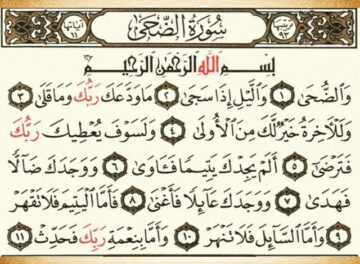 ترتيبها ٩٣ سُورَةُ الضُّحَىٰ آياتها ١١
بِسْمِ اللَّهِ الرَّحْمَٰنِ الرَّحِيمِ
وَالضُّحَىٰ ١ وَاللَّيْلِ إِذَا سَجَىٰ ٢ مَا وَدَّعَكَ رَبُّكَ وَمَا قَلَىٰ ٣
وَلَلْآخِرَةُ خَيْرٌ لَّكَ مِنَ الْأُولَىٰ ٤ وَلَسَوْفَ يُعْطِيكَ رَبُّكَ
فَتَرْضَىٰ ٥ أَلَمْ يَجِدْكَ يَتِيمًا فَآوَىٰ ٦ وَوَجَدَكَ ضَالًّا
فَهَدَىٰ ٧ وَوَجَدَكَ عَائِلًا فَأَغْنَىٰ ٨ فَأَمَّا الْيَتِيمَ فَلَا تَقْهَرْ
٩ وَأَمَّا السَّائِلَ فَلَا تَنْهَرْ ١٠ وَأَمَّا بِنِعْمَةِ رَبِّكَ فَحَدِّثْ ١١